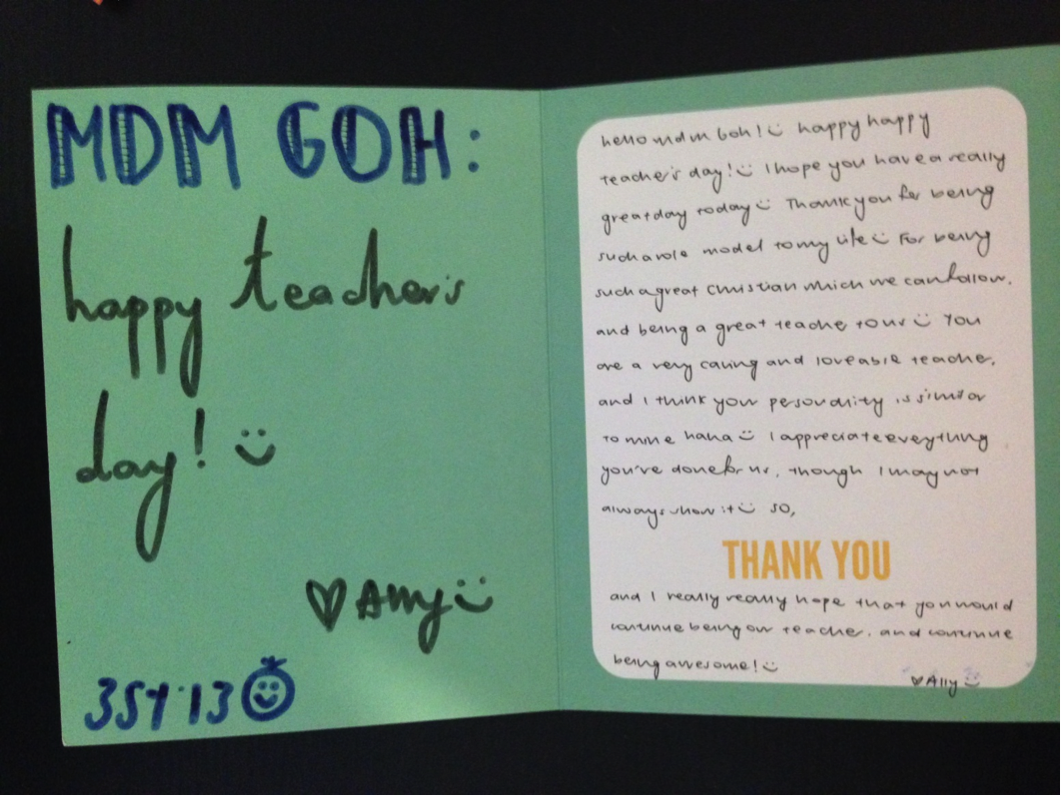 MDM GOH:
happy teacher's
day! :)
♡ Ally :)
3S4'13
hello mdm Goh! :) happy happy
teacher's day! :) I hope you have a really
great day today :) Thank you for being
such a role model to my life :) For being
such a great Christian which we can follow,
and being a great teacher to us :) You
are a very caring and loveable teacher,
and I think your personality is similar
to mine haha :) I appreciate everything
you've done for us, though I may not
always show it :) So,
THANK YOU
and I really really hope that you would
continue being our teacher, and continue
being awesome! :)
♡ Ally :)